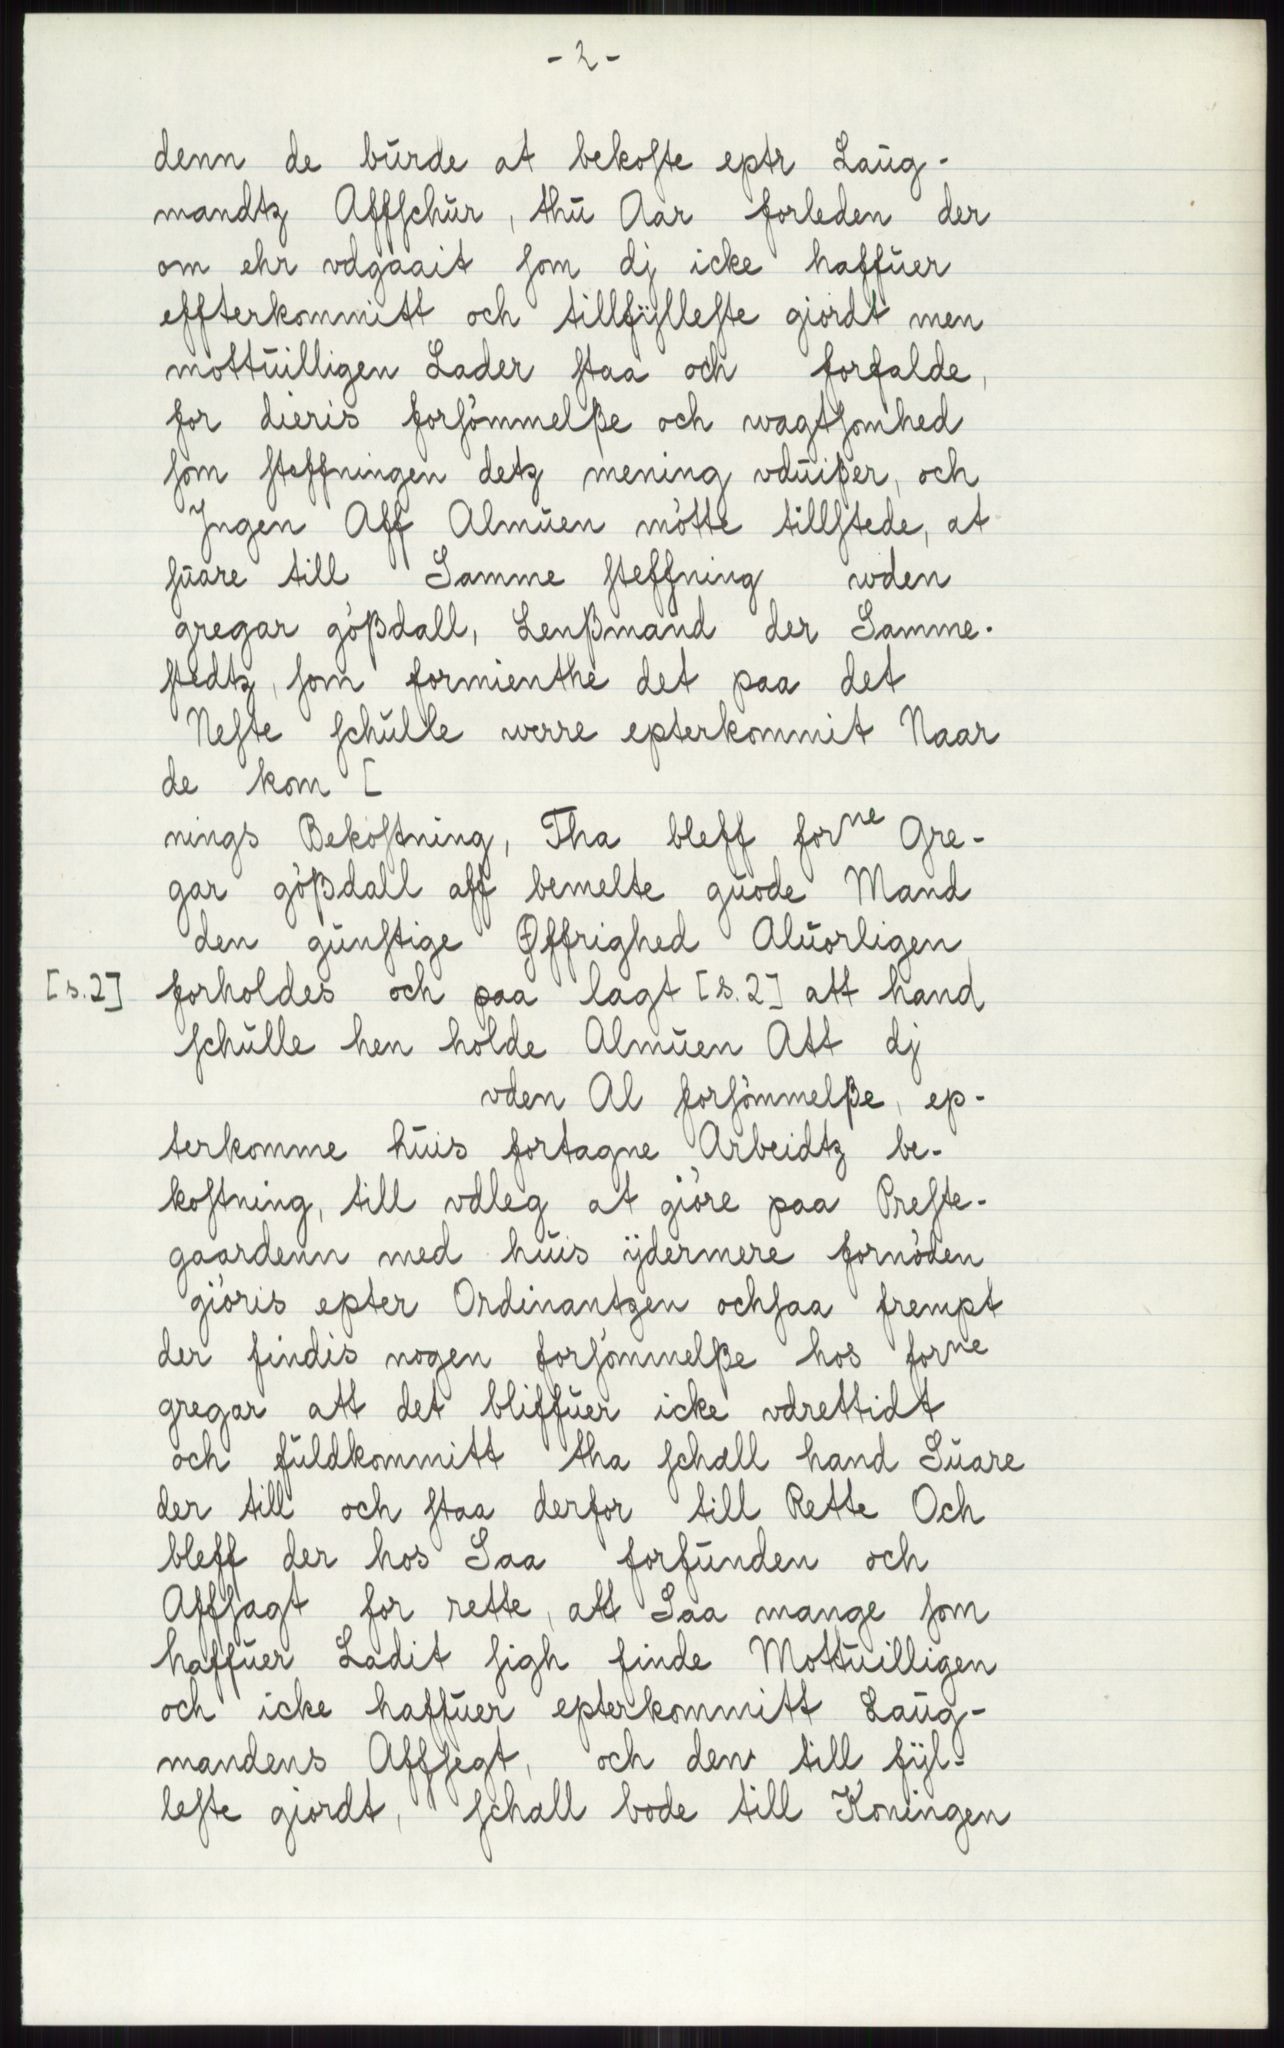 - 2 -
denn de burde at bekoste eptr Laug-
mandtz Affschur, thu Aar forleden der
om ehr vdgaait som dj icke haffuer
effterkommitt och tillfÿlleste giordt men
mottuilligen Lader staa och forfalde,
for dieris forsömmelße och wagtsomhed
som steffningen detz mening vduißer, och
Jngen Aff Almuen mötte tillstede, at
suare till Samme steffning vden
gregar gößdall, Lenßmand der Samme-
stedtz, som formienthe det paa det
Neste schulle werre epterkommit Naar
de kom [
nings Bekostning, Tha bleff forne Gre-
gar gößdall aff bemelte guode Mand
den gunstige Øffrighed Aluorligen
[s.2] forholdes och paa lagt [s.2] att hand
schulle hen holde Almuen Att dj
vden Al forsömmelße, ep-
terkomme huis fortagne Arbeidtz be-
kostning, till vdleg at giöre paa Preste-
gaardenn med huis ÿdermere fornöden
giöris epter Ordinantzen ochsaa frempt
der findis nogen forsömmelße hos forne
gregar att det bliffuer icke vdrettidt
och fuldkommitt tha schall hand Suare
der till och staa derfor till Rette Och
bleff der hos Saa forfunden och
Affsagt for rette, att Saa mange som
haffuer Ladit sigh finde Mottuilligen
och icke haffuer epterkommitt Laug-
mandens Affsegt, och den till fÿl-
leste giordt, schall bode till Koningen